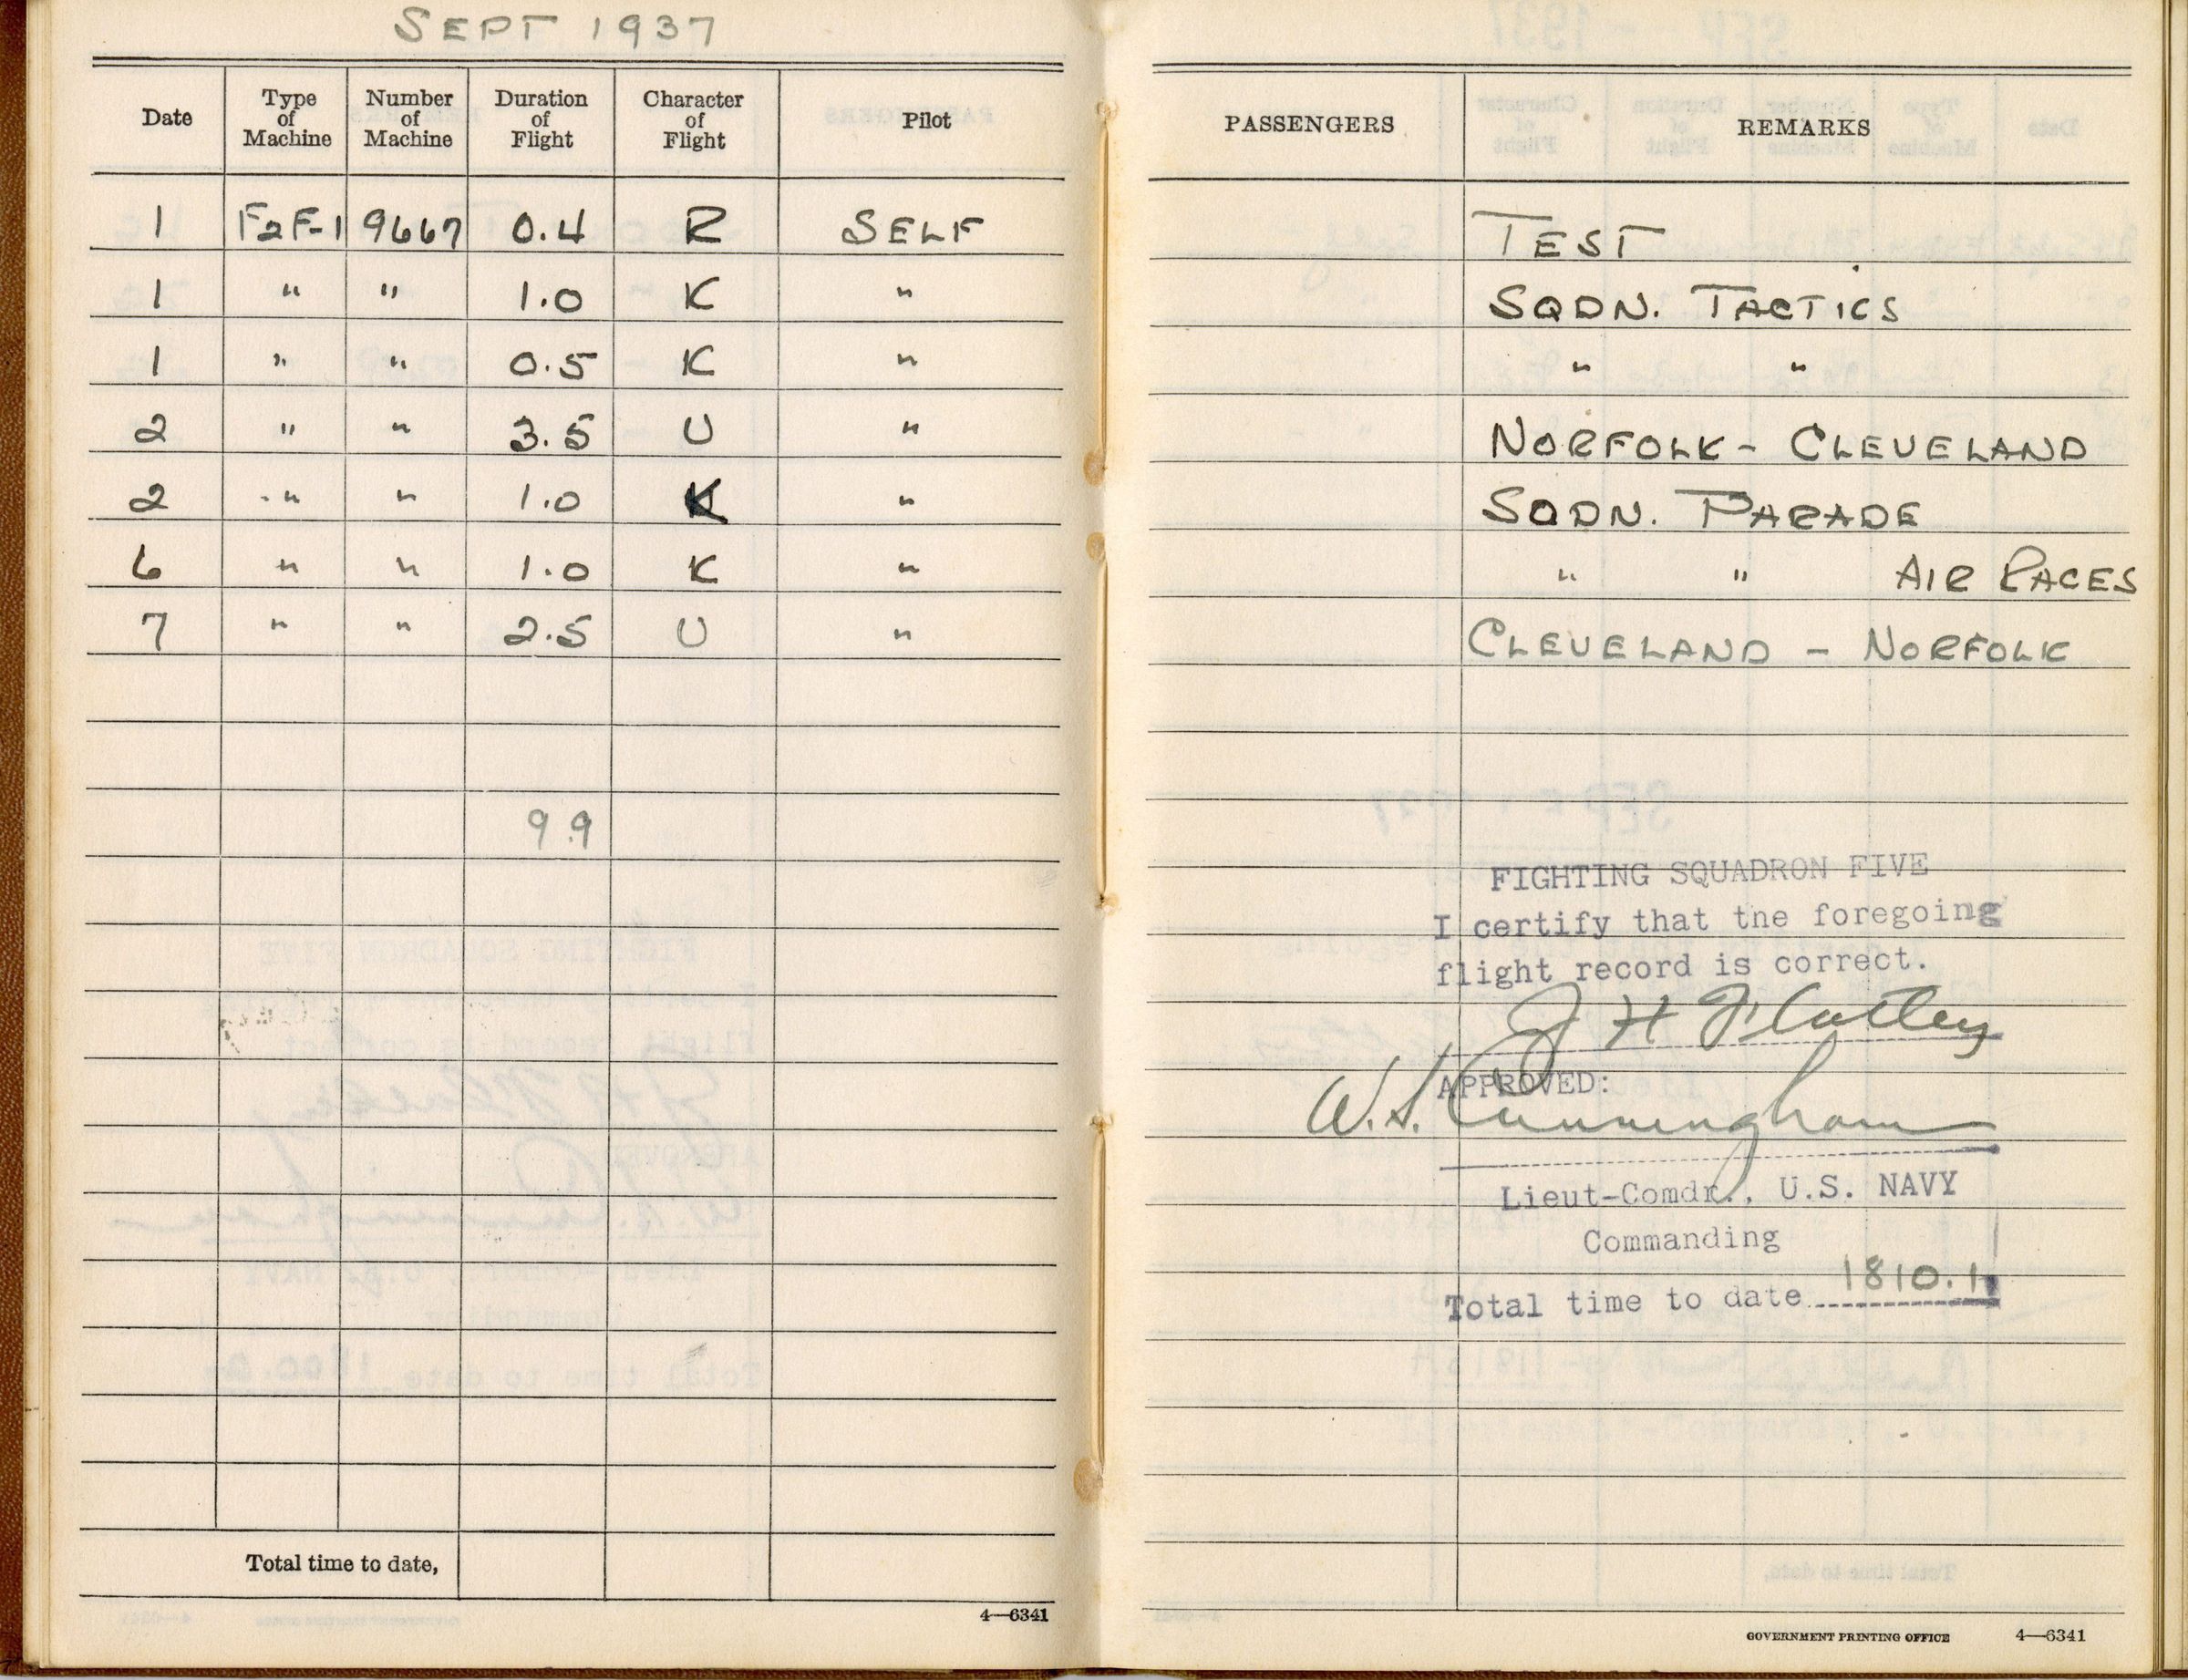 SEPT 1937
Date Type of Machine Number of Machine Duration of Flight Character of Flight Pilot
1 F2F-1 9667 0.4 R SELF
1 " " 1.0 K "
1 " " 0.5 K "
2 " " 3.5 U "
2 " " 1.0 K "
6 " " 1.0 K "
7 " " 2.5 U "
9.9
Total time to date,
4—6341
PASSENGERS REMARKS
TEST
SQDN. TACTICS
" "
NORFOLK - CLEVELAND
SQDN. PARADE
" " AIR RACES
CLEVELAND - NORFOLK
FIGHTING SQUADRON FIVE
I certify that the foregoing
flight record is correct.
J H Flatley
APPROVED:
W. S. Cunningham
Lieut-Comdr., U.S. NAVY
Commanding
Total time to date 1810.1
GOVERNMENT PRINTING OFFICE 4—6341